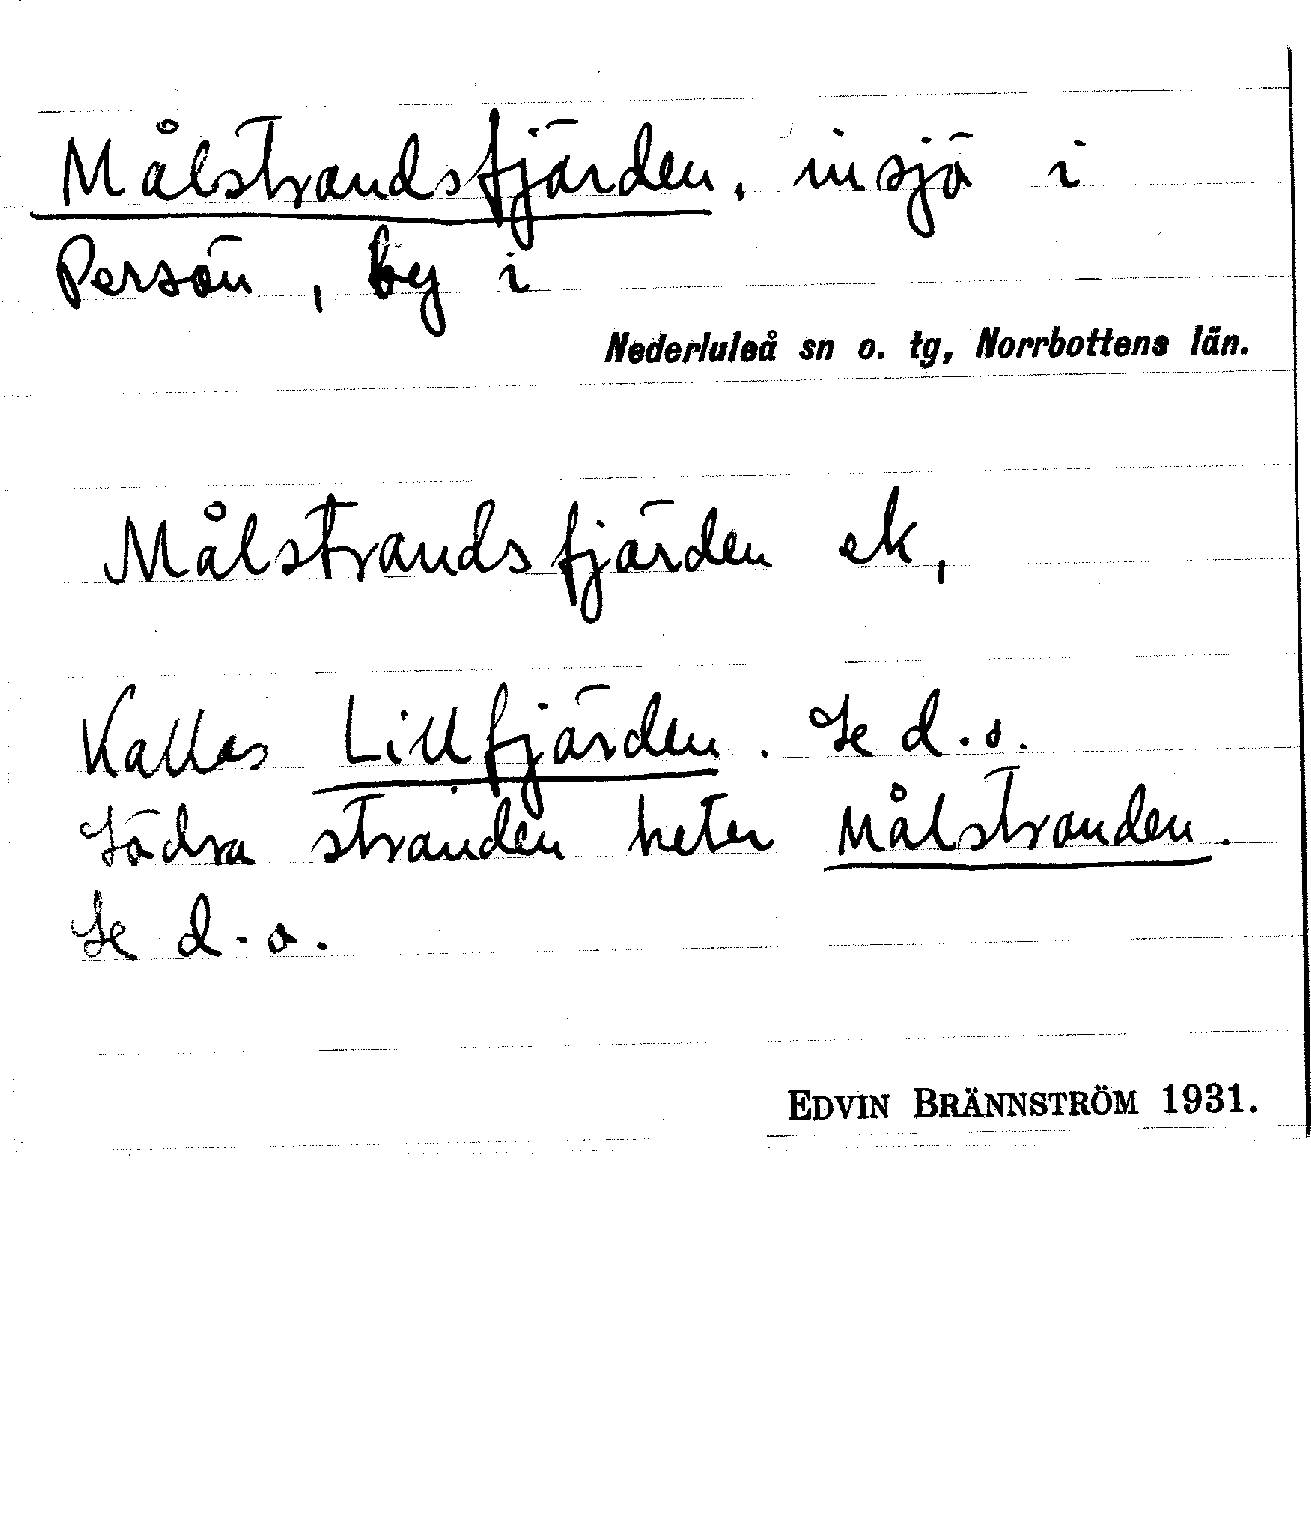 Målstrandsfjärden, insjö i
Persön, by i
Nederluleå sn o. tg, Norrbottens län.
Målstrandsfjärden ek,
Kallas Lillfjärden. Se d.o.
Södra stranden heter Målstranden.
Se d.o.
EDVIN BRÄNNSTRÖM 1931.